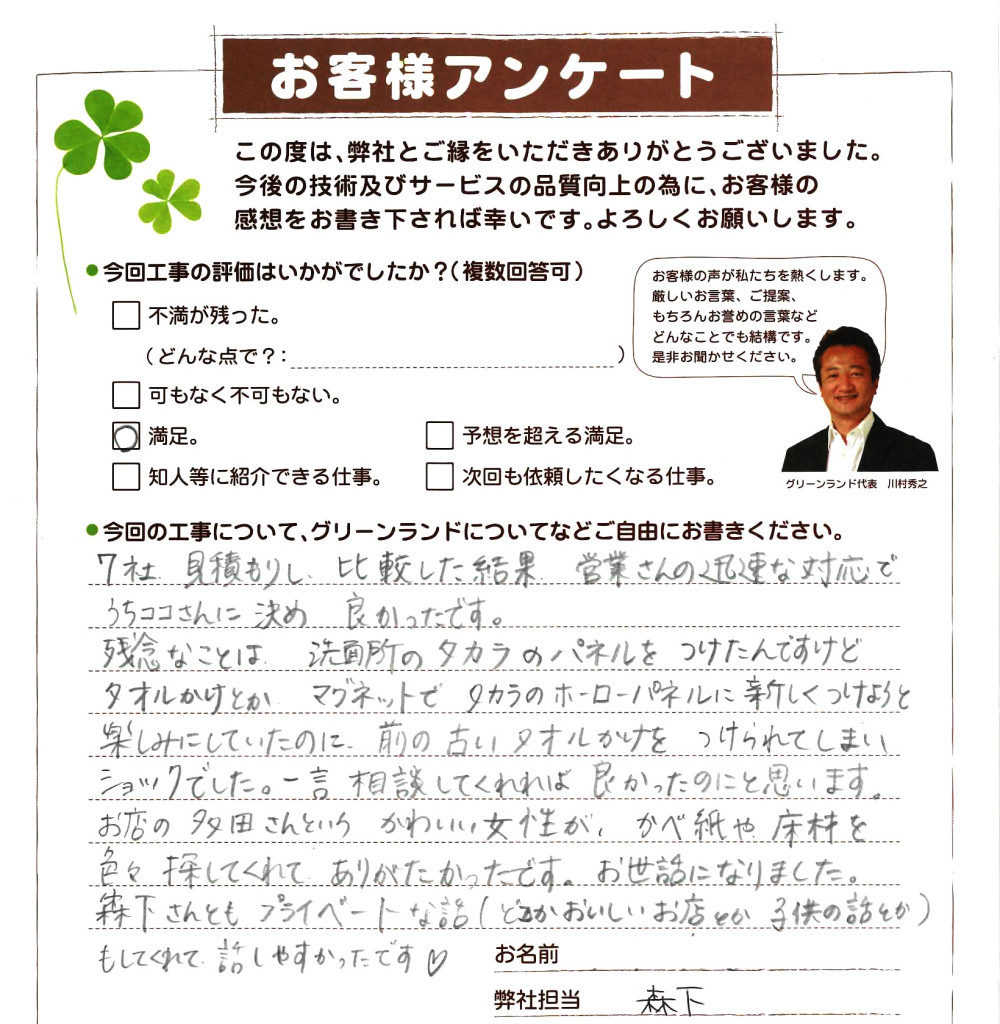 お客様アンケート
この度は、弊社とご縁をいただきありがとうございました。
今後の技術及びサービスの品質向上の為に、お客様の
感想をお書き下されば幸いです。よろしくお願いします。
●今回工事の評価はいかがでしたか？（複数回答可）
不満が残った。
（どんな点で？：　　　）
可もなく不可もない。
満足。
予想を超える満足。
知人等に紹介できる仕事。
次回も依頼したくなる仕事。
お客様の声が私たちを熱くします。
厳しいお言葉、ご提案、
もちろんお誉めの言葉など
どんなことでも結構です。
是非お聞かせください。
グリーンランド代表　川村秀之
●今回の工事について、グリーンランドについてなどご自由にお書きください。
7社 見積もりし 比較した結果 営業さんの迅速な対応で
うちココさんに決め 良かったです。
残念なことは 洗面所のタカラのパネルを つけたんですけど
タオルかけとか マグネットで タカラのホーローパネルに新しくつけようと
楽しみにしていたのに 前の古いタオルかけを つけられてしまい
ショックでした。一言 相談してくれれば 良かったのにと思います。
お店の 多田さんという かわいい女性が、かべ紙や 床材を
色々 探してくれて ありがたかったです。お世話になりました。
森下さんとも プライベートな話（どこかおいしいお店とか 子供の話とか）
もしてくれて 話しやすかったです♡
お名前
弊社担当　森下